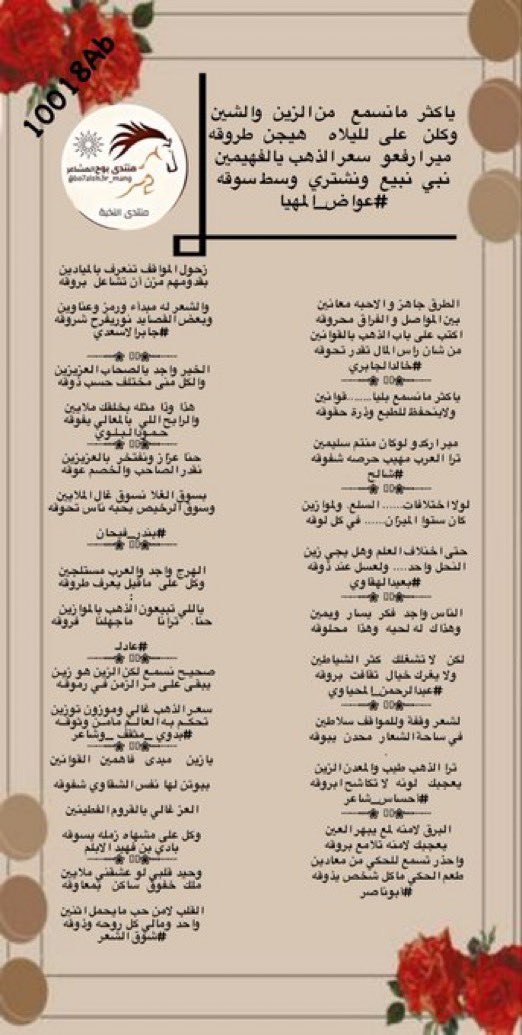 10018Ab
منتدى بوح المشاعر
منتدى النخبة
ياكثر مانسمع من الزين والشين
وكلن على لليلاه هيجن طروقه
ميرارفعو سعر الذهب يالفهيمين
نبي نبيع ونشتري وسط سوقه
#عواض_المهيا
الطرق جاهز و الاحبه معانين
بين المواصل و الفراق محروقه
اكتب على باب الذهب بالقوانين
من شان راس المال تقدر تحوقه
#خالدالجابري
ياكثر مانسمع بليا........قوانين
ولاينحفظ للطبع وذرة حقوقه
ميراركدو لوكان منتم سليمين
ترا العرب مهيب حرصه شفوقه
#شالح
لولا اختلافات...... السلع. ولموازين
كان ستوا الميزان...... في كل لوقه
حتى اختلاف العلم وهل يجي زين
النحل واحد.... ولعسل عند ذوقه
#بعيدالهقاوي
الناس واجد فكر يسار ويمين
وهذاك له لحيه وهذا محلوقه
لكن لا تشغلك كثر الشياطين
ولا يغرك خيال تقافت بروقه
#عبدالرحمن_المحياوي
لشعر وقفة وللمواقف سلاطين
في ساحة الشعار محدن يبوقه
ترا الذهب طيب والمعدن الزين
يعجبك لونه لا تكاشح ابروقه
#احساس_شاعر
البرق لامنه لمع يبهر العين
يعجبك لامنه تلامع بروقه
واحذر تسمع للحكي من معادين
طعم الحكي ماكل شخص يذوقه
#ابوناصر
زحول المواقف تنعرف بالميادين
بقدومهم مزن ان تشاعل بروقه
والشعر له مبداء ورمز وعناوين
وبعض القصايد نوريفرح شروقه
#جابرالاسعدي
الخير واجد بالصحاب العزيزين
والكل منى مختلف حسب ذوقه
هذا وذا مثله يخلفك ملايين
والرابح اللي بالمعالي يفوقه
حمودالبلوي
حنا عزاز ونفتخر بالعزيزين
نقدر الصاحب والخصم عوقه
بسوق الغلا تسوق غال الملايين
وسوق الرخيص يحبه ناس تحوقه
#بندر_فيحان
الهرج واجد والعرب مستلجين
وكل على ماقيل يعرف طروقه
:
ياللي تبيعون الذهب بالموازين
حنا. ترانا ماجهلنا فروقه
#عادل
صحيح نسمع لكن الزين هو زين
يبقى على مر الزمن في رموقه
سعر الذهب غالي وموزون توزين
تحكم به العالم مامن وثوقه
#بدوي_مثقف_وشاعر
يازين مبدى فاهمين القوانين
يبوتن لها نفس الشقاوي شفوقه
العز غالي بالقروم الفطينين
وكل على مشهاه زمله يسوقه
بادي بن فهيد الابلم
وحيد قلبي لو عشقني ملايين
ملك خفوق ساكن بمعاوقه
القلب لامن حب مايحمل اثنين
واحد ومالي كل روحه وذوقه
#شوق الشعر